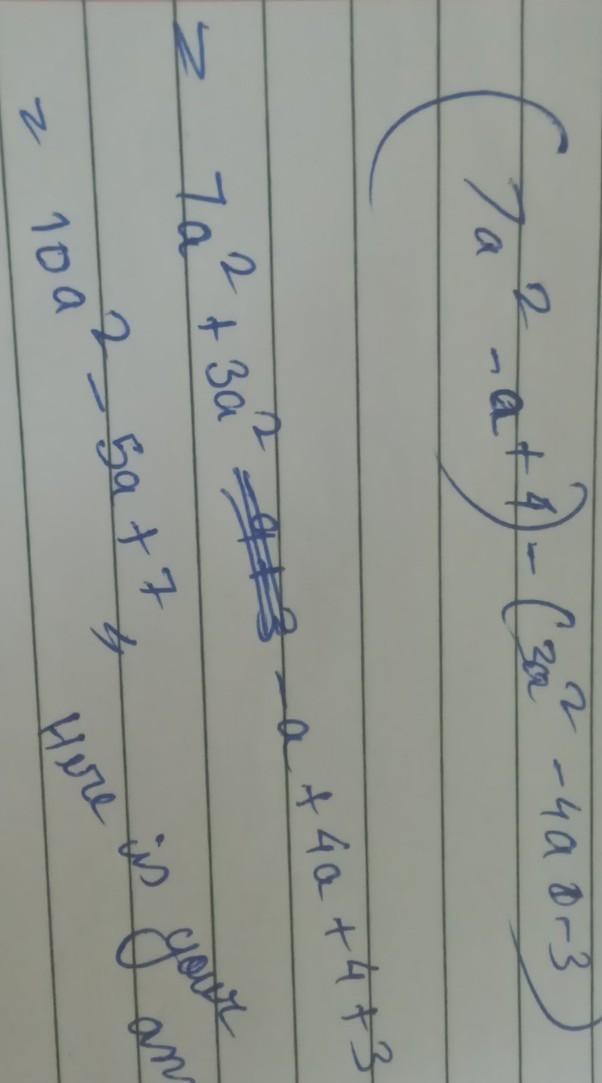 (7a² - a + 4) - (3a² - 4a - 3)
= 7a² + 3a² - a + 4a + 4 + 3
= 10a² - 5a + 7
Here is your an